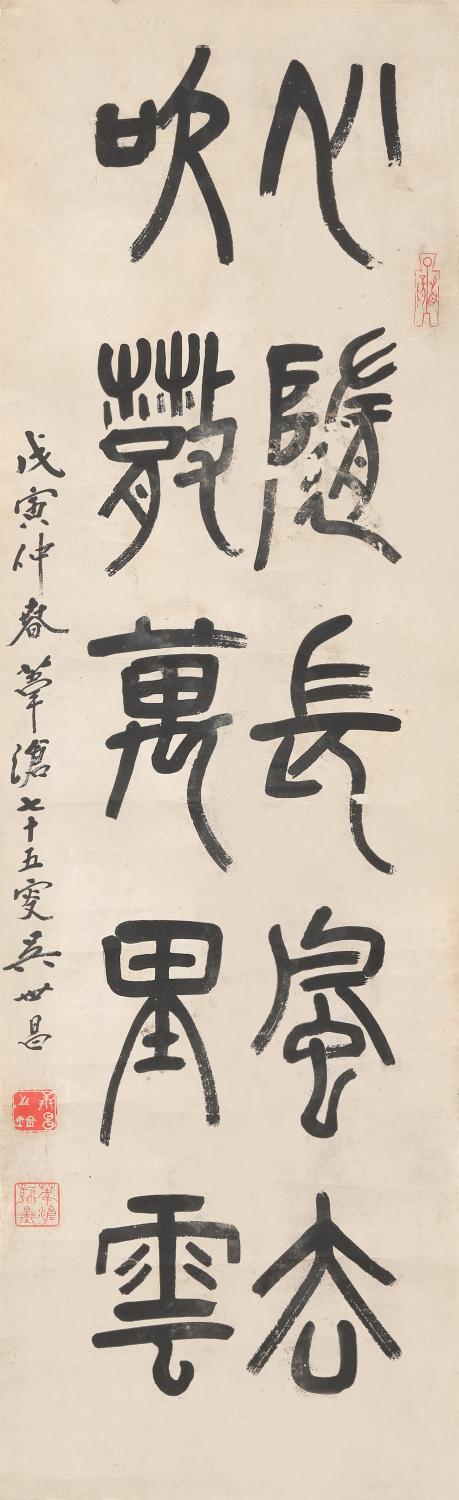 心隨長風去
吹散萬里雲
戊寅仲春葦滄七十五叟吳世昌